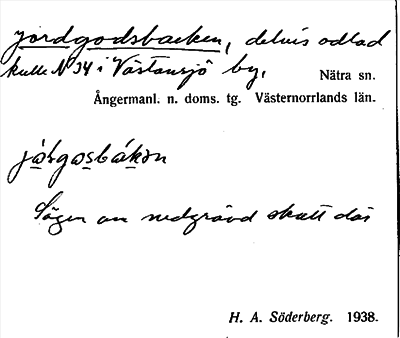 jordgodsbacken, delvis odlad
kulle N 34 i Västansjö by,
Nätra sn.
Ångermanl. n. doms. tg. Västernorrlands län.
Sägen om nedgrävd skatt där
H. A. Söderberg. 1938.